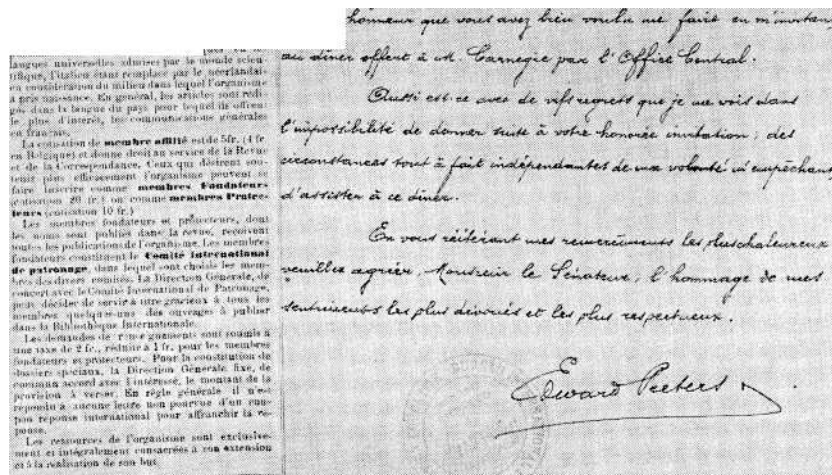 langues universelles admises par le monde scien-
tifique, l'italien étant remplacé par le néerlandais
en considération du milieu dans lequel l'organisme
a pris naissance. En général, les articles sont rédi-
gés dans la langue du pays pour lequel ils offrent
le plus d'intérêt, les communications générales
en français.
La cotisation de membre affilié est de 5fr. (4 fr.
en Belgique) et donne droit au service de la Revue
et de la Correspondance. Ceux qui désirent sou-
tenir plus efficacement l'organisme peuvent se
faire inscrire comme membres Fondateurs
(cotisation 20 fr.) ou comme membres Protec-
teurs (cotisation 10 fr.)
Les membres fondateurs et protecteurs, dont
les noms sont publiés dans la revue, reçoivent
toutes les publications de l'organisme. Les membres
fondateurs constituent le Comité international
de patronage, dans lequel sont choisis les mem-
bres des divers comités. La Direction Générale, de
concert avec le Comité International de Patronage,
peut décider de servir à titre gracieux à tous les
membres quelques-uns des ouvrages à publier
dans la Bibliothèque Internationale.
Les demandes de renseignements sont soumis à
une taxe de 2 fr., réduite à 1 fr. pour les membres
fondateurs et protecteurs. Pour la constitution de
dossiers spéciaux, la Direction Générale fixe, de
commun accord avec l'intéressé, le montant de la
provision à verser. En règle générale il n'est
répondu à aucune lettre non pourvue d'un cou-
pon réponse international pour affranchir la ré-
ponse.
Les ressources de l'organisme sont exclusive-
ment et intégralement consacrées à son extension
et à la réalisation de son but.
honneur que vous avez bien voulu me faire en m'invitant
au dîner offert à M. Carnegie par l'Office Central.
Aussi est-ce avec de vifs regrets que je me vois dans
l'impossibilité de donner suite à votre honorée invitation; des
circonstances tout à fait indépendantes de ma volonté m'empêchant
d'assister à ce dîner.
En vous réitérant mes remerciments les plus chaleureux
veuillez agréer, Monsieur le Sénateur, l'hommage de mes
sentiments les plus dévoués et les plus respectueux.
Edward Peeters